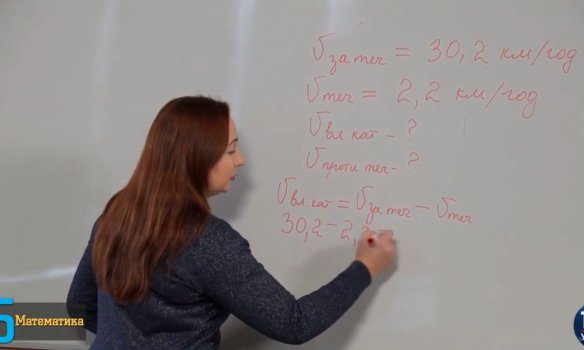 υ за теч = 30,2 км/год
υ теч = 2,2 км/год
υ вл кат - ?
υ проти теч - ?
υ вл. кат = υ за теч - υ теч
30,2 - 2,
5 Математика